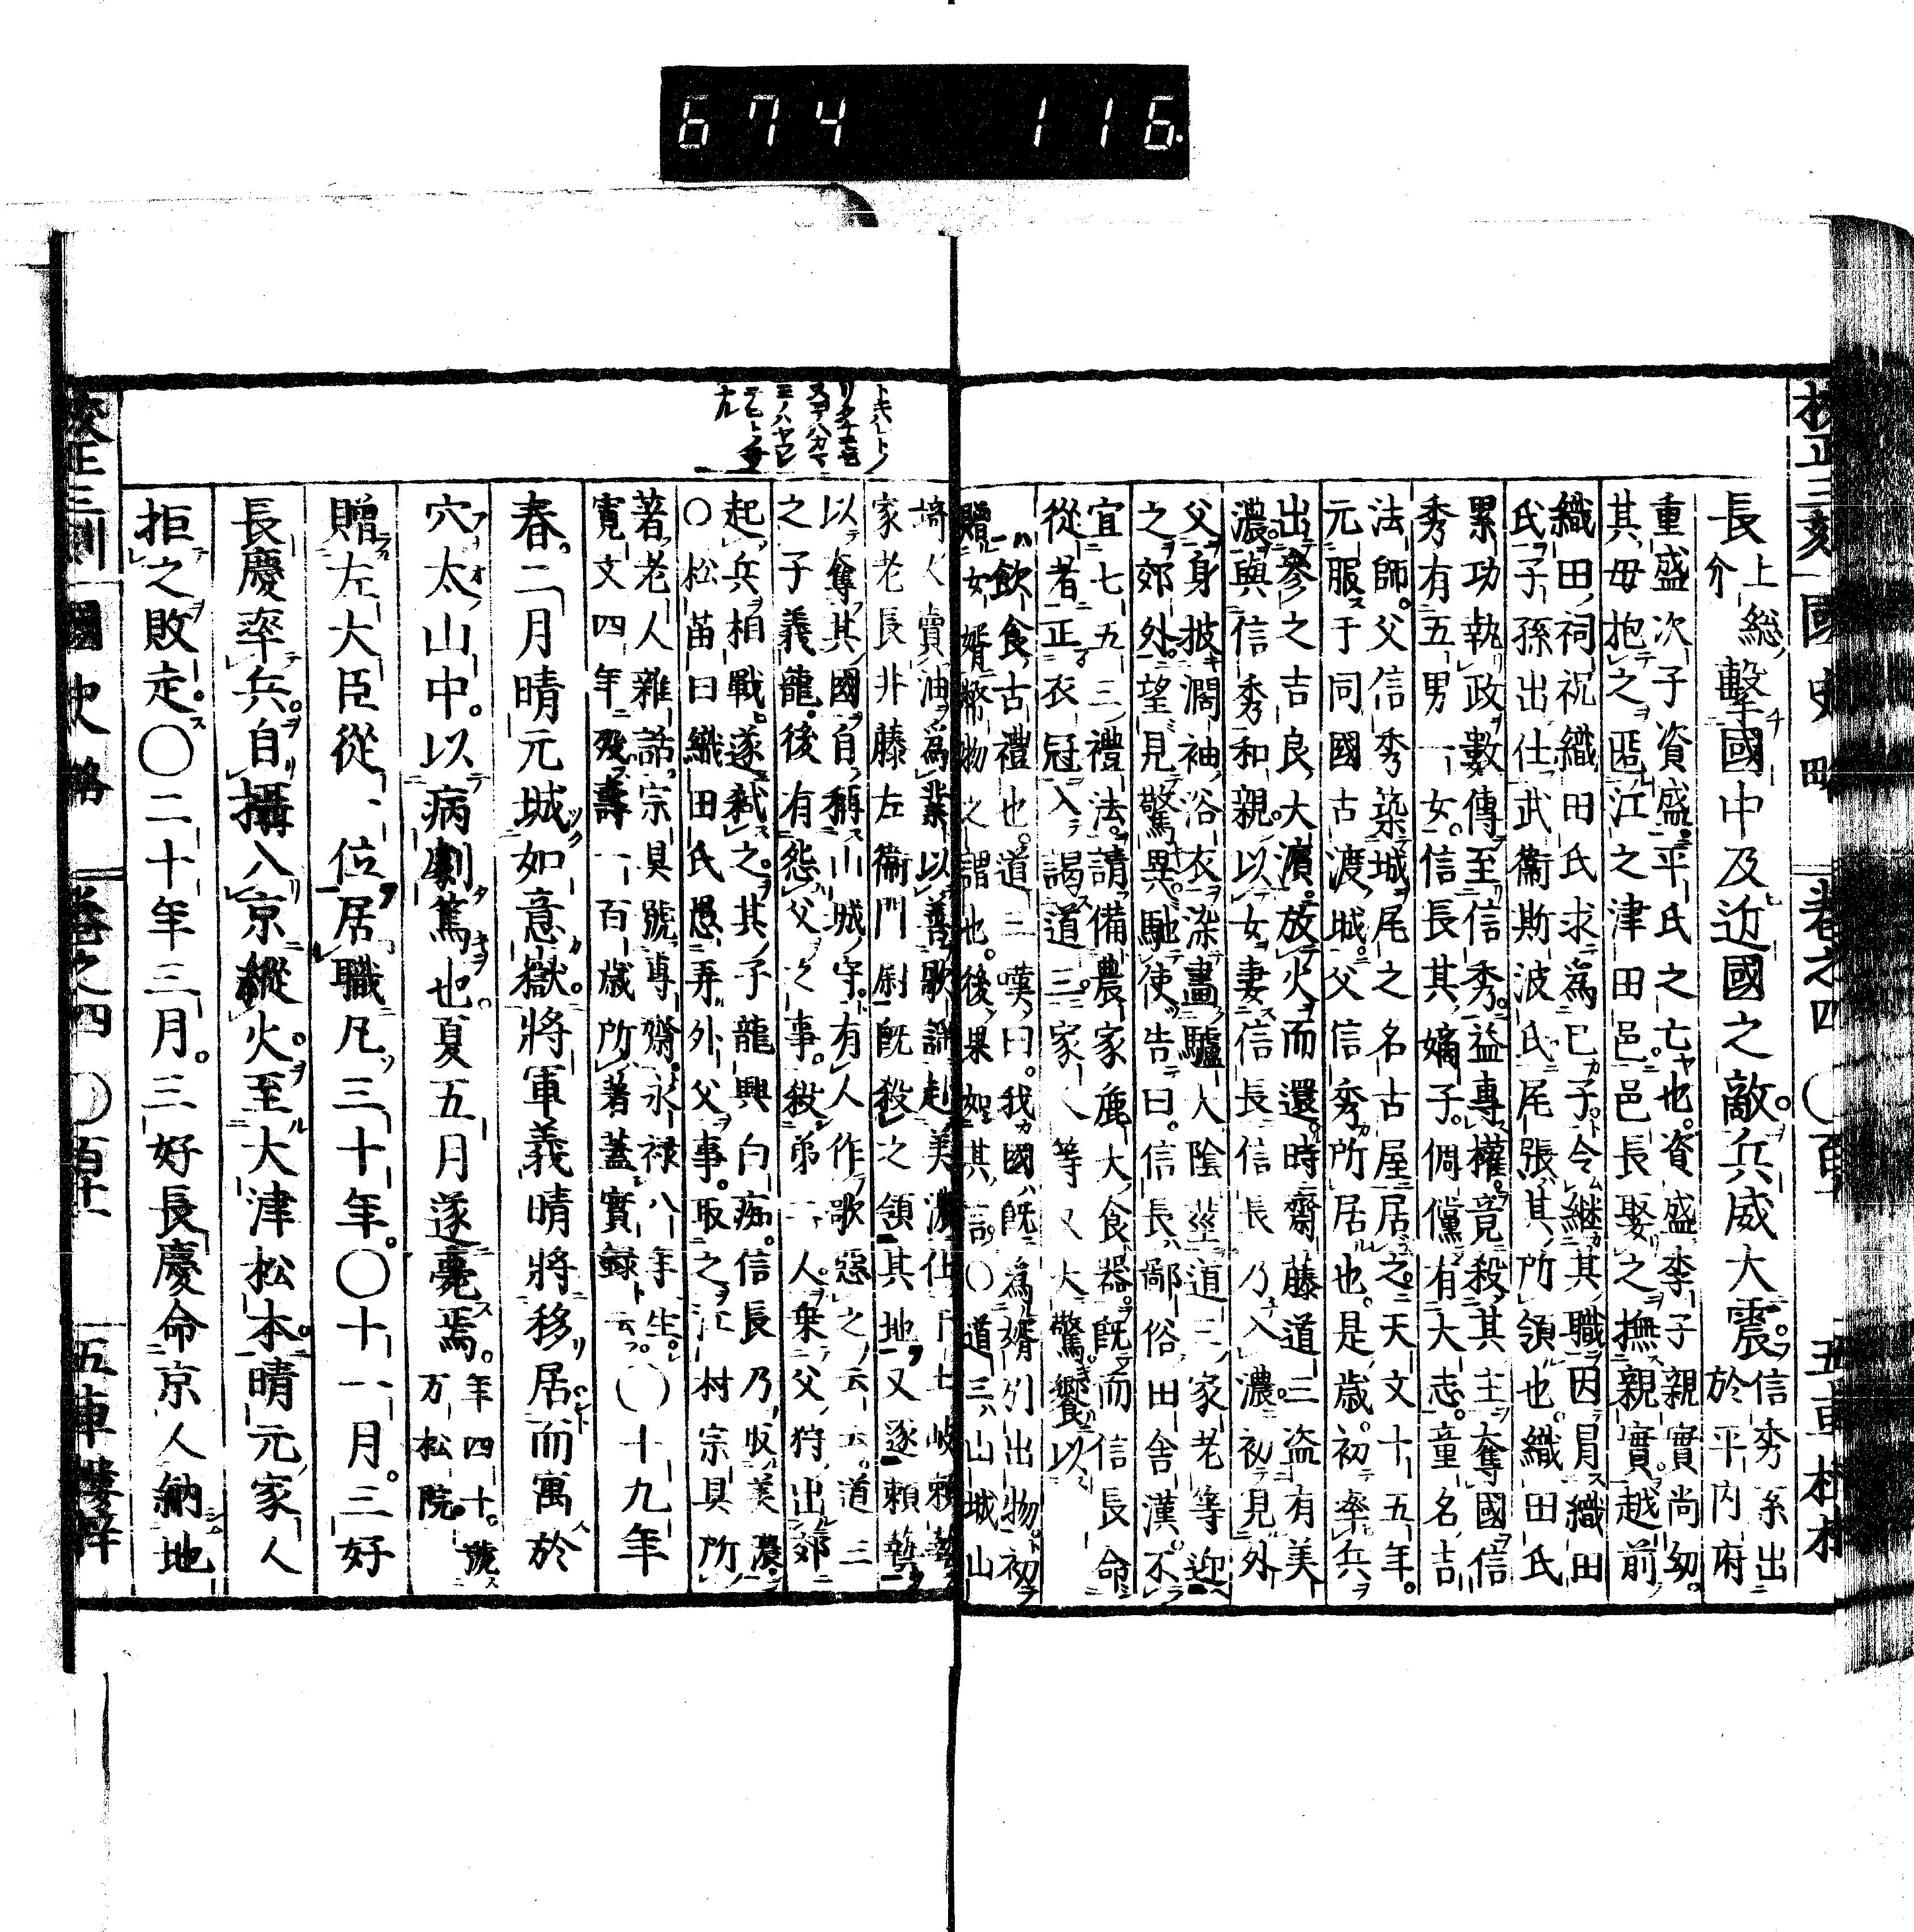 674 116.
校正三刻 國史略 卷之四 〇百十 五車樓梓
長上総介擊國中及近國之敵兵威大震信秀系出於平内府
重盛次子資盛平氏之亡也資盛季子親實尚幼
其母抱之匿江之津田邑邑長娶之撫親實越前
織田祠祝織田氏求為己子令継其職因冐織田
氏子孫出仕武衞斯波氏尾張其所領也織田氏
累功執政數傳至信秀益專權竟殺其主奪國信
秀有五男一女信長其嫡子倜儻有大志童名吉
法師父信秀築城尾之名古屋居之天文十五年
元服于同國古渡城父信秀所居也是歳初率兵
出參之吉良大濱放火而還時齋藤道三盗有美
濃與信秀和親以女妻信長信長乃入濃初見外
父身披濶袖浴衣染畫驢大陰莖道三家老等迎
之郊外望見驚異馳使告曰信長鄙俗田舎漢不
宜七五三禮法請備農家麁大食器既而信長命
從者正衣冠入謁道三家人等又大驚饗以
飲食古禮也道三嘆曰我國既為壻引出物初
贈女壻幣物之謂也後果如其言〇道三山城山
﨑人賣油為業以善歌謡赴美濃仕土岐頼藝
家老長井藤左衞門尉既殺之領其地又逐頼藝
以奪其國自稱山城守有人作歌惡之云云道三
之子義龍後有怨父之事殺弟二人乗父狩出郊
起兵相戰遂弑之其子龍興白痴信長乃取美濃
〇松苗曰織田氏愚弄外父事取之江村宗具所
著老人雜話宗具號専齋永禄八年生
寛文四年歿壽一百歳所著蓋實録云〇十九年
春二月晴元城如意嶽將軍義晴將移居而寓於
穴太山中以病劇篤也夏五月遂薨焉年四十號万松院
贈左大臣從一位居職凡三十年〇十一月三好
長慶率兵自攝入京縱火至大津松本晴元家人
拒之敗走〇二十年三月三好長慶命京人納地
校正三刻 國史略 卷之四 〇百十 五車樓梓